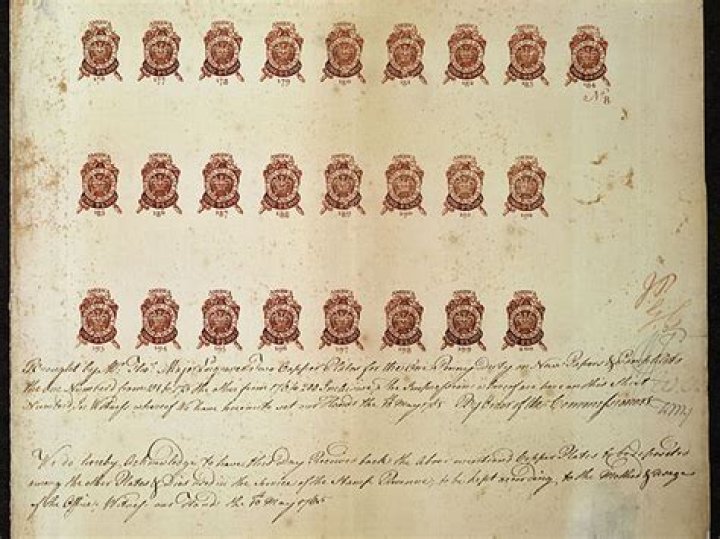 176 177 178 179 180 181 182 183 184
No 8
185 186 187 188 189 190 191 192
193 194 195 196 197 198 199 200
Brought by Mr. Thos. Major Engraver Two Copper Plates for the One Penny duty on News Papers & Pamphlets
the one Numberd from to the other from 176 to 200 Inclusive the Impressions whereof are here on this Sheet
Numberd, In Witness whereof We have hereunto set our Hands the 10 May 1765 By Order of the Commissioners
We do hereby Acknowledge to have this Day Received back the above mentioned Copper Plates to be deposited
among the other Plates & Dies used in the Service of the Stamp Revenue, to be kept according to the Method & usage
of the Office. Witness our Hands the 10 May 1765